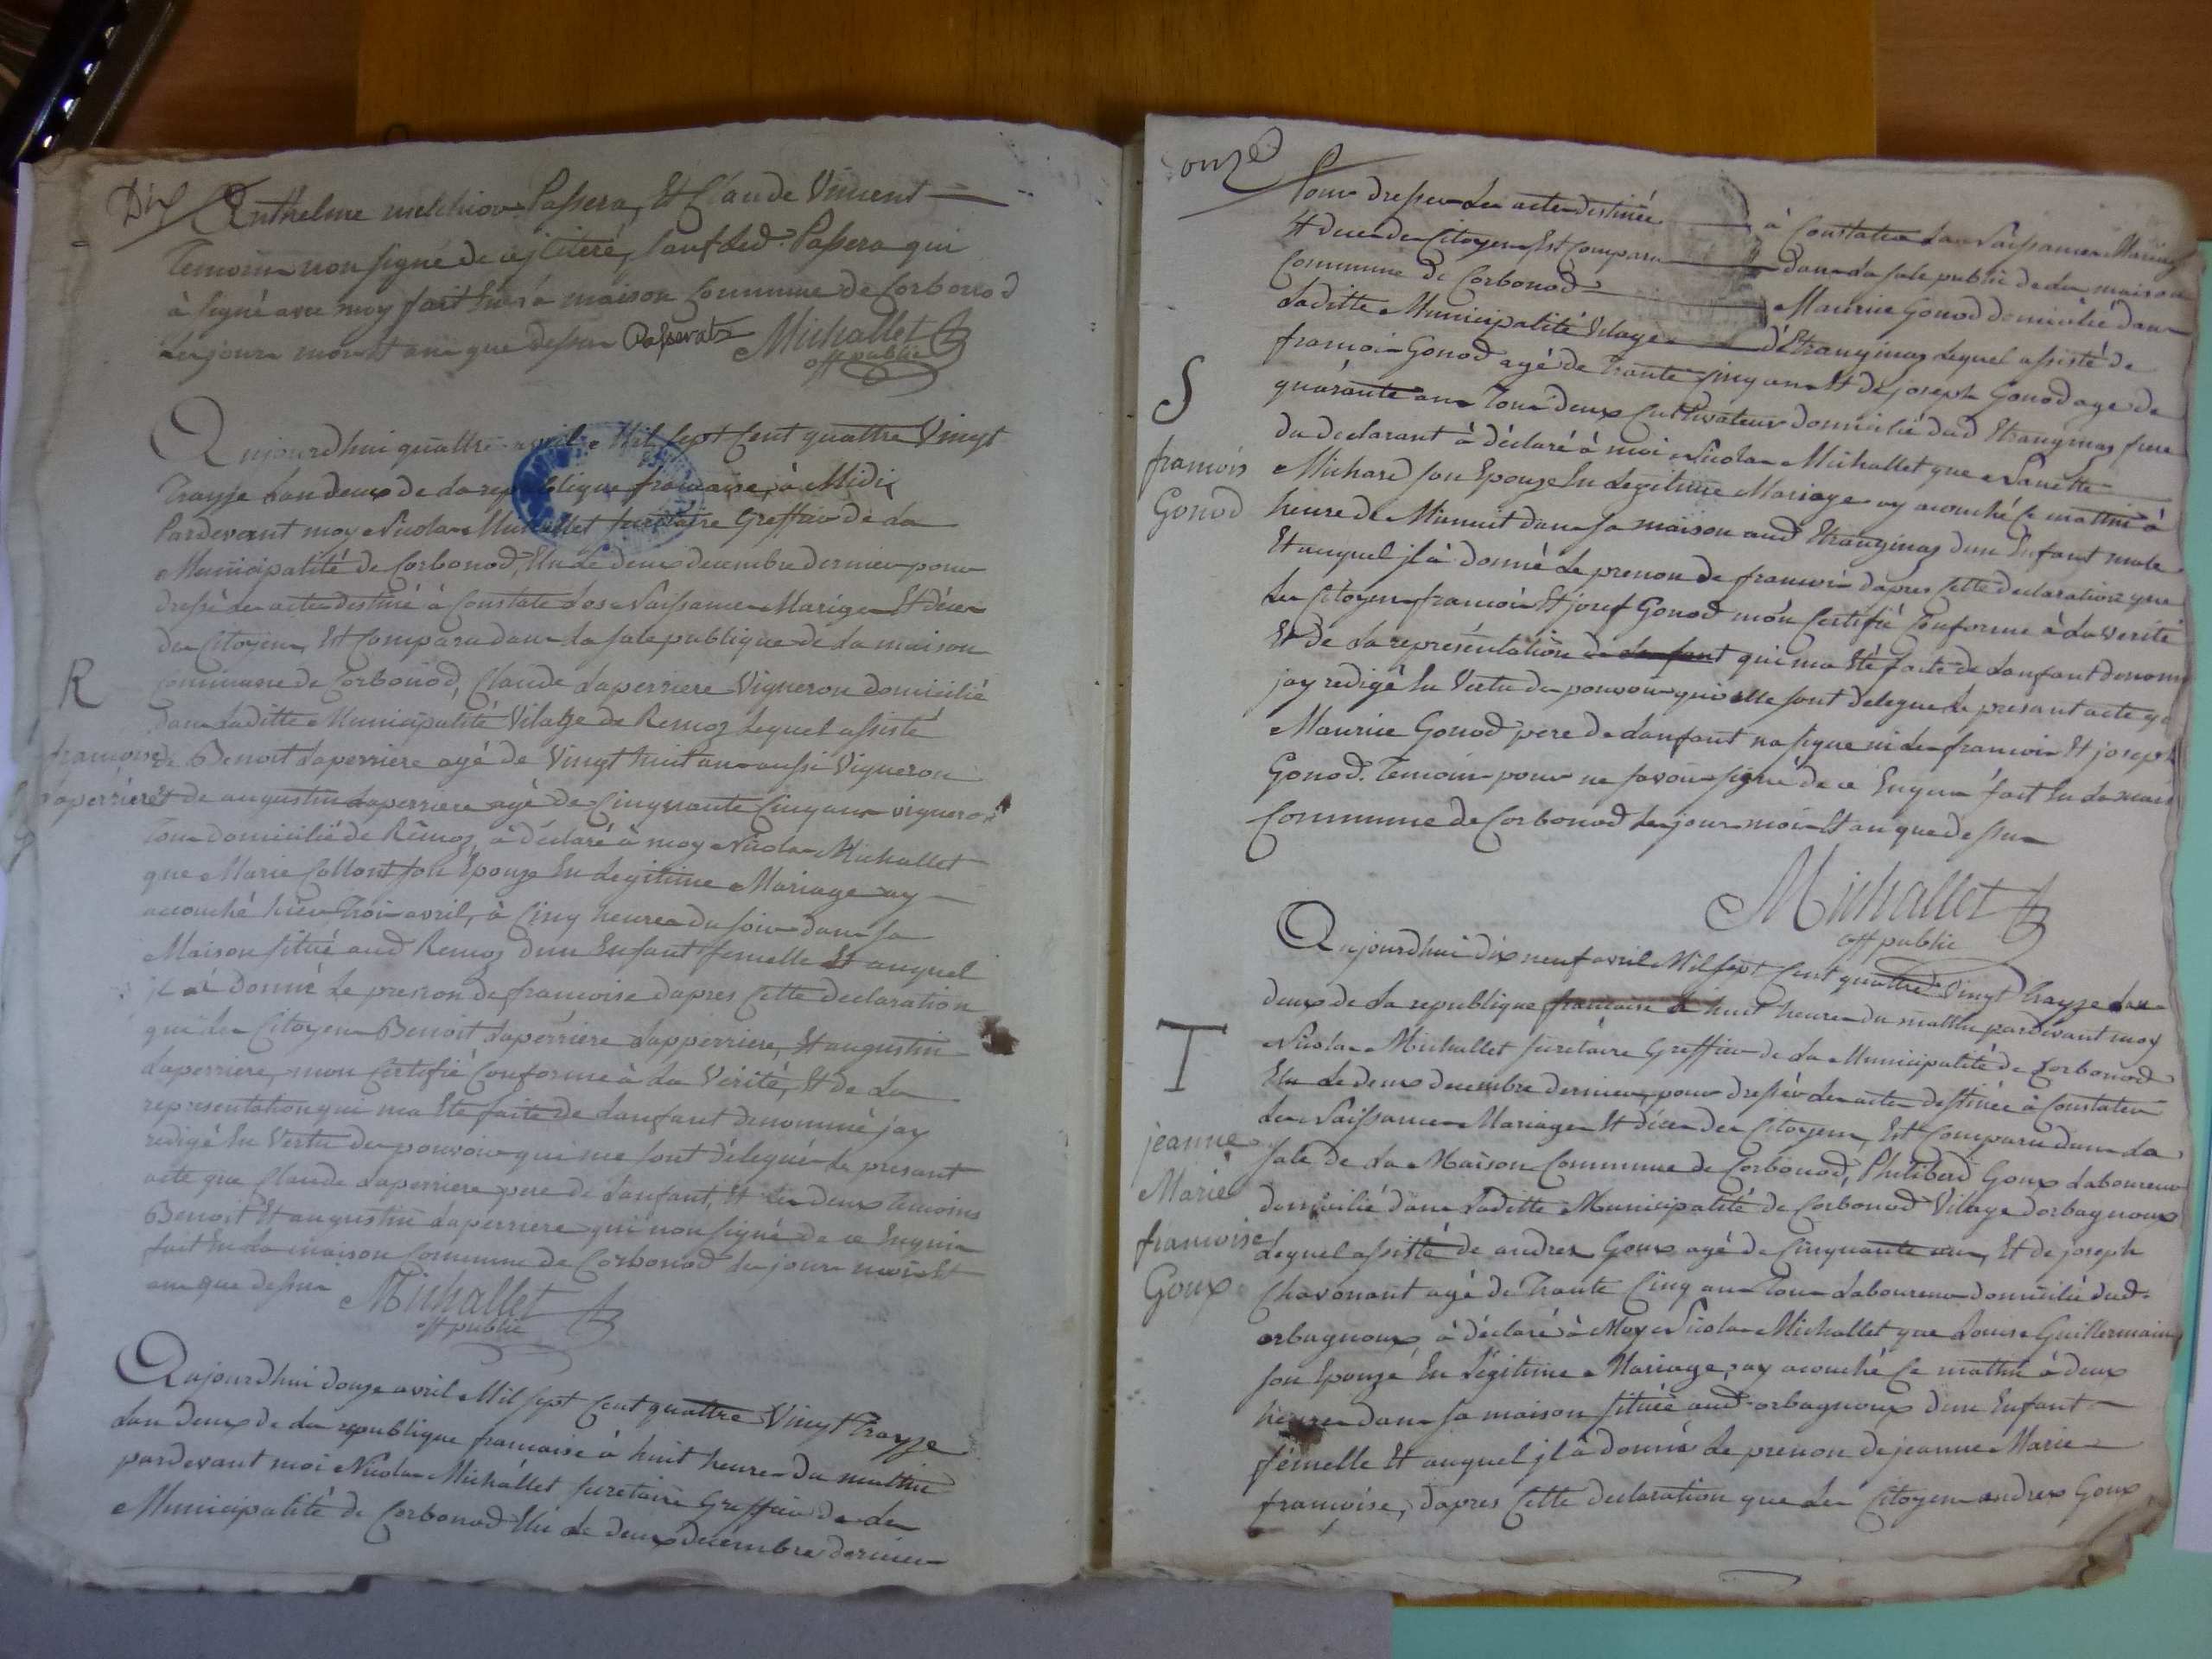 Dix
Enthelme melchior Passera, Et Claude Vincent
Temoins non signé de ce jtiteré, sauf led. Passera qui
à signé avec moy fait En la maison Commune de Corbonod
les jours mois Et ans que dessus Passerat Michallet
off public
Aujourdhui quattre avril Mil sept Cent quattre Vingt
Trayze Lan deux de la republique francaise, à Midi
Pardevant moy Nicolas Michallet secretaire Greffier de la
Municipalité de Corbonod, Elu Le deux decembre dernier pour
dressé les actes destiné à Constate Les Naissances Mariges Et Déces
des Citoyens, Est Comparu dans la sale publique de la maison
commune de Corbonod, Claude Laperriere Vigneron domicilié
R
dans Laditte Municipalité Vilatge de Remoz Lequel assisté
francoise
Laperriere
de Benoit Laperriere agé de Vingt huit ans aussi Vigneron
Et de augustin Laperriere agé de Cinquante Cinq ans vigneron
Tous domicilié de Rémoz, à déclaré à moy Nicolas Michallet
que Marie Collont son Epouze En Legitime Mariage ay
acouché hier Troi avril, à Cinq heures du soir dans sa
Maison situé aud Remoz dun Enfant femelle Et auquel
jl a Donné Le prenon de francoise dapres Cette declaration
que les Citoyens Benoit Laperriere Lapperriere, Et augustin
Laperriere, mon Certifié Conforme à La Vérité, Et de La
representation qui ma Eté faite de Lanfant denommé jay
redigé En Vertu des pouvoirs qui me sont délegués Le presant
acte que Claude Laperriere pere de Lanfant, Et les deux temoins
Benoit Et augustin Laperriere qui non signé de ce Enquis
fait En La maison Commune de Corbonod les jours mois Et
ans que dessus Michallet
off public
Aujourdhui douze avril Mil sept Cent quattre Vingt Trayze
Lan deux de la republique francaise à huit heures du mattin
pardevant moi Nicolas Michallet secretaire Greffier de la
Municipalité de Corbonod Elu Le deux decembre dernier
onze
Pour dresser Les actes destinée à Constater Les Naissances Mariag
Et deces des Citoyens Est Comparu dans La sale public de la maison
Commune de Corbonod Maurice Gonod domicilié dans
Laditte Municipalité Vilage d'Etranginaz Lequel assisté de
francois Gonod agé de Trante sinq ans Et de joseph Gonod age de
quarante ans Tous deux Cultivateurs domicilié dud Etranginaz frere
S
francois
Gonod
du declarant à déclaré à moi Nicolas Michallet que Nanette
Michard son Epouze En Legitime Mariage ay acouché Ce mattin à
heure de Minuit dans sa maison aud Etranginaz dun Enfant male
Et auquel jl à donné Le prenon de francois dapres Cette declaration que
Les Citoyens francois Et josef Gonod mon Certifié Conforme à La verité
Et de La representation qui ma Eté faite de Lanfant denom
jay redigé En Vertu des pouvoirs qui elle sont delegues Le presant acte q
Maurice Gonod pere de Lanfant na signe ni les francois Et joseph
Gonod. Temoins pour ne savoir signé de ce Enquis fait En La mais
Commune de Corbonod Les jours mois Et an que dessus
Michallet
off public
Aujourdhui dix neuf avril Mil sept Cent quattre Vingt Trayze Lan
deux de La republique francaise à huit heures du mattin pardevant moy
T
Nicolas Michallet secretaire Greffier de La Municipalité de Corbonod
Elu Le deux decembre dernier, pour dressér Les actes destinée à Constater
Les Naissances Mariages Et déces des Citoyens, Est Comparu dans La
jeanne
Marie
francoise
Goux
sale de La Maison Commune de Corbonod, Philiberd Goux Laboureur
domicilié dans Laditte Municipalité de Corbonod Vilage dorbagnoux
Lequel assisté de andrez Goux agé de Cinquante ans, Et de joseph
Chavonant agé de Trante Cinq ans Tous Laboureurs domicilié dud.
orbagnoux à déclaré à Moy Nicolas Michallet que Louise Guillermain
son Epouzé En Légitime Mariage, ay acouché Ce mattin à deux
heures dans sa maison située aud orbagnoux dun Enfant
fémelle Et auquel jl à donné Le prenon de jeanne Marie
francoise, dapres Cette declaration que Les Citoyens andrez Goux